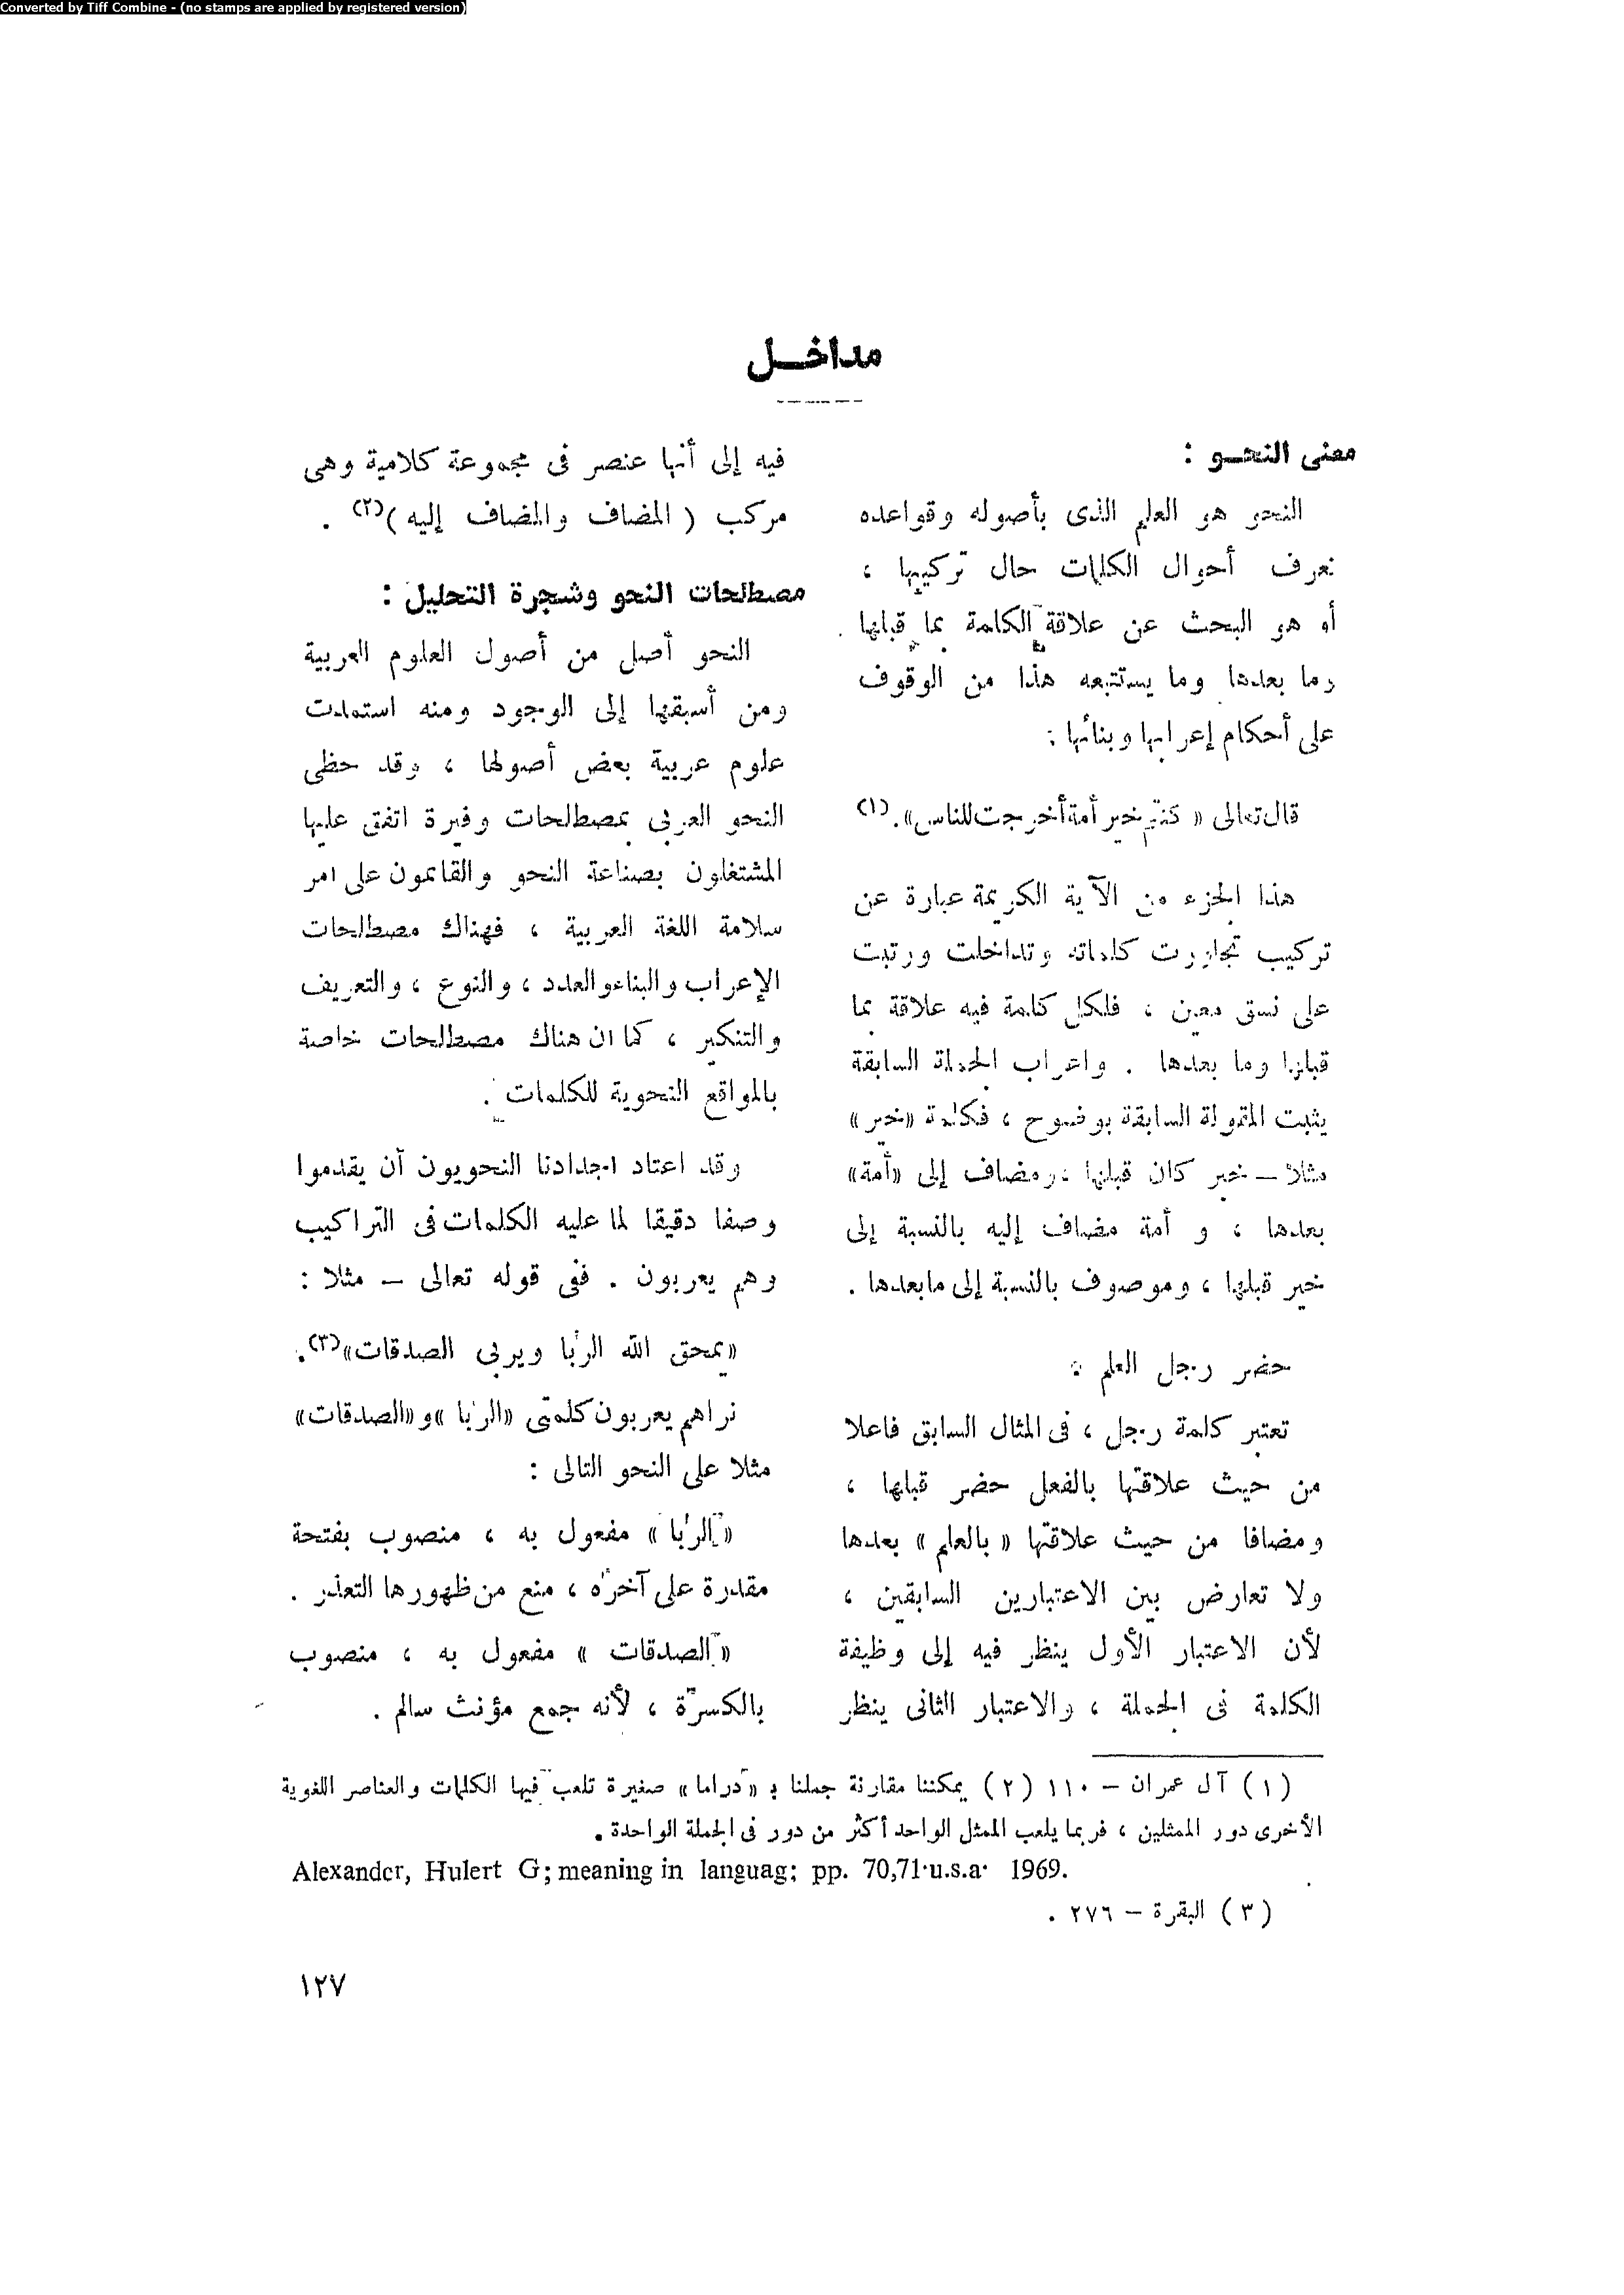 Converted by Tiff Combine - (no stamps are applied by registered version)
مداخـل
معنى النحـو :
النحو هو العلم الذى بأصوله وقواعده
نعرف أحوال الكلمات حال تركيبها ،
أو هو البحث عن علاقة الكلمة بما قبلها
وما بعدها وما يستتبعه هذا من الوقوف
على أحكام إعرابها وبنائها :
قال تعالى « كنتم خير أمة أخرجت للناس».(١)
هذا الجزء من الآية الكريمة عبارة عن
تركيب تجاورت كلماته وتداخلت ورتبت
على نسق معين ، فلكل كلمة فيه علاقة بما
قبلها وما بعدها . واعراب الجملة السابقة
يثبت المقولة السابقة بوضوح ، فكلمة «خير»
مثلا – خبر كان قبلها ، ومضاف إلى «أمة»
بعدها ، و أمة مضاف إليه بالنسبة إلى
خير قبلها ، وموصوف بالنسبة إلى مابعدها .
حضر رجل العلم :
تعتبر كلمة رجل ، فى المثال السابق فاعلا
من حيث علاقتها بالفعل حضر قبلها ،
ومضافا من حيث علاقتها « بالعلم » بعدها
ولا تعارض بين الاعتبارين السابقين ،
لأن الاعتبار الأول ينظر فيه إلى وظيفة
الكلمة فى الجملة ، والاعتبار الثانى ينظر
فيه إلى أنها عنصر فى مجموعة كلامية وهى
مركب ( المضاف والمضاف إليه )(٢) .
مصطلحات النحو وشجرة التحليل :
النحو أصل من أصول العلوم العربية
ومن أسبقها إلى الوجود ومنه استمدت
علوم عربية بعض أصولها ، وقد حظى
النحو العربى بمصطلحات وفيرة اتفق عليها
المشتغلون بصناعة النحو والقائمون على امر
سلامة اللغة العربية ، فهناك مصطلحات
الإعراب والبناء والعدد ، والنوع ، والتعريف
والتنكير ، كما ان هناك مصطلحات خاصة
بالمواقع النحوية للكلمات .
وقد اعتاد اجدادنا النحويون أن يقدموا
وصفا دقيقا لما عليه الكلمات فى التراكيب
وهم يعربون . ففى قوله تعالى – مثلا :
«يمحق الله الربا ويربى الصدقات»(٣).
نراهم يعربون كلمتى «الربا »و«الصدقات»
مثلا على النحو التالى :
«الربا » مفعول به ، منصوب بفتحة
مقدرة على آخره ، منع من ظهورها التعذر .
« الصدقات » مفعول به ، منصوب
بالكسرة ، لأنه جمع مؤنث سالم .
(١) آل عمران – ١١٠ (٢) يمكننا مقارنة جملنا بـ «دراما» صغيرة تلعب فيها الكلمات والعناصر اللغوية
الأخرى دور الممثلين ، فربما يلعب الممثل الواحد أكثر من دور فى الجملة الواحدة .
Alexander, Hulert G; meaning in languag; pp. 70,71·u.s.a· 1969.
(٣) البقرة – ٢٧٦ .
١٢٧